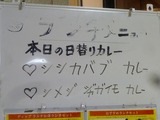 ランチメニュー
本日の日替りカレー
♡シシカバブ カレー
♡シメジ ジャガイモ カレー